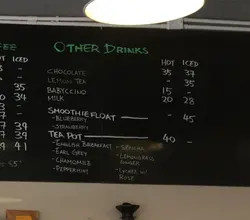 FEE OTHER DRINKS
HOT ICED HOT ICED
CHOCOLATE 35 37
LEMON TEA - 35
BABYCCINO 15 -
MILK 20 28
SMOOTHIE FLOAT - 45
- BLUEBERRY
- STRAWBERRY
TEA POT 40 -
- ENGLISH BREAKFAST
- EARL GREY
- CHAMOMILE
- PEPPERMINT
- SENCHA
- LEMONGRASS GINGER
ROSE
35
35
37 39
37 39
39 41